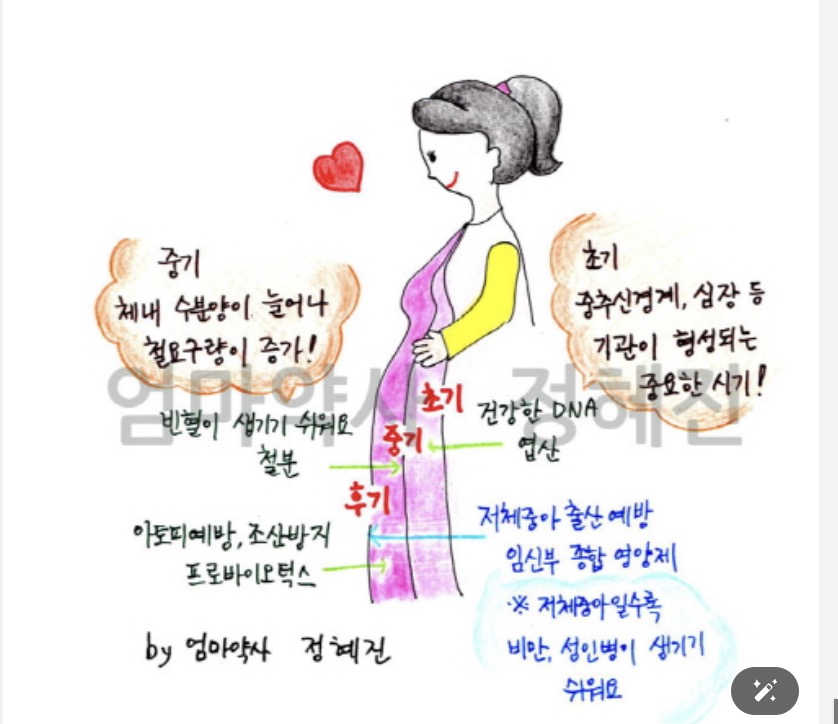 중기
체내 수분양이 늘어나
철요구량이 증가!
초기
중추신경계, 심장 등
기관이 형성되는
중요한 시기!
엄마약사 정혜진
초기
중기
후기
건강한 DNA
엽산
빈혈이 생기기 쉬워요
철분
아토피예방, 조산방지
프로바이오틱스
저체중아 출산예방
임신부 종합 영양제
※ 저체중아일수록
비만, 성인병이 생기기
쉬워요
by 엄마약사 정혜진